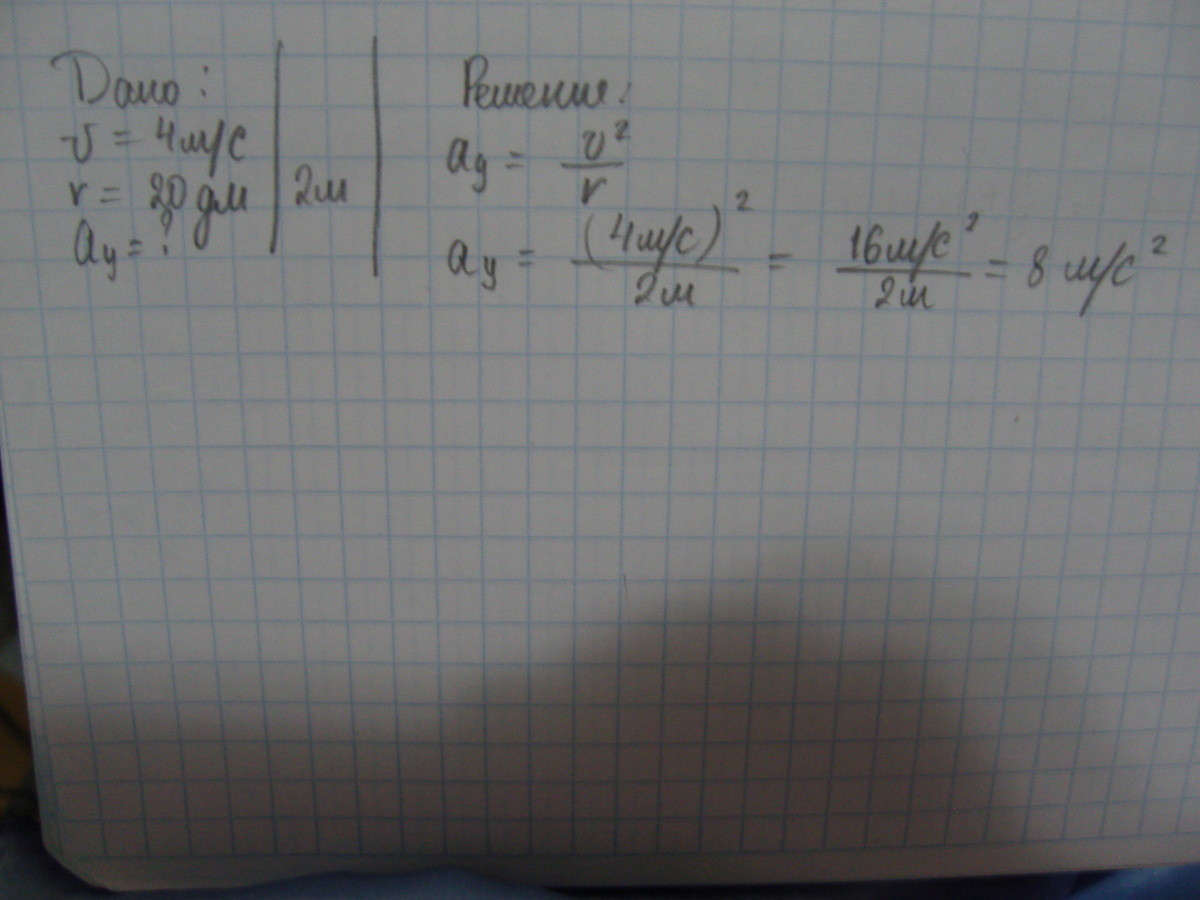 Дано:
v = 4м/с
r = 20 дм | 2м
aу = ?
Решение:
aу = v²/r
aу = (4м/с)²/2м = 16м/с²/2м = 8 м/с²